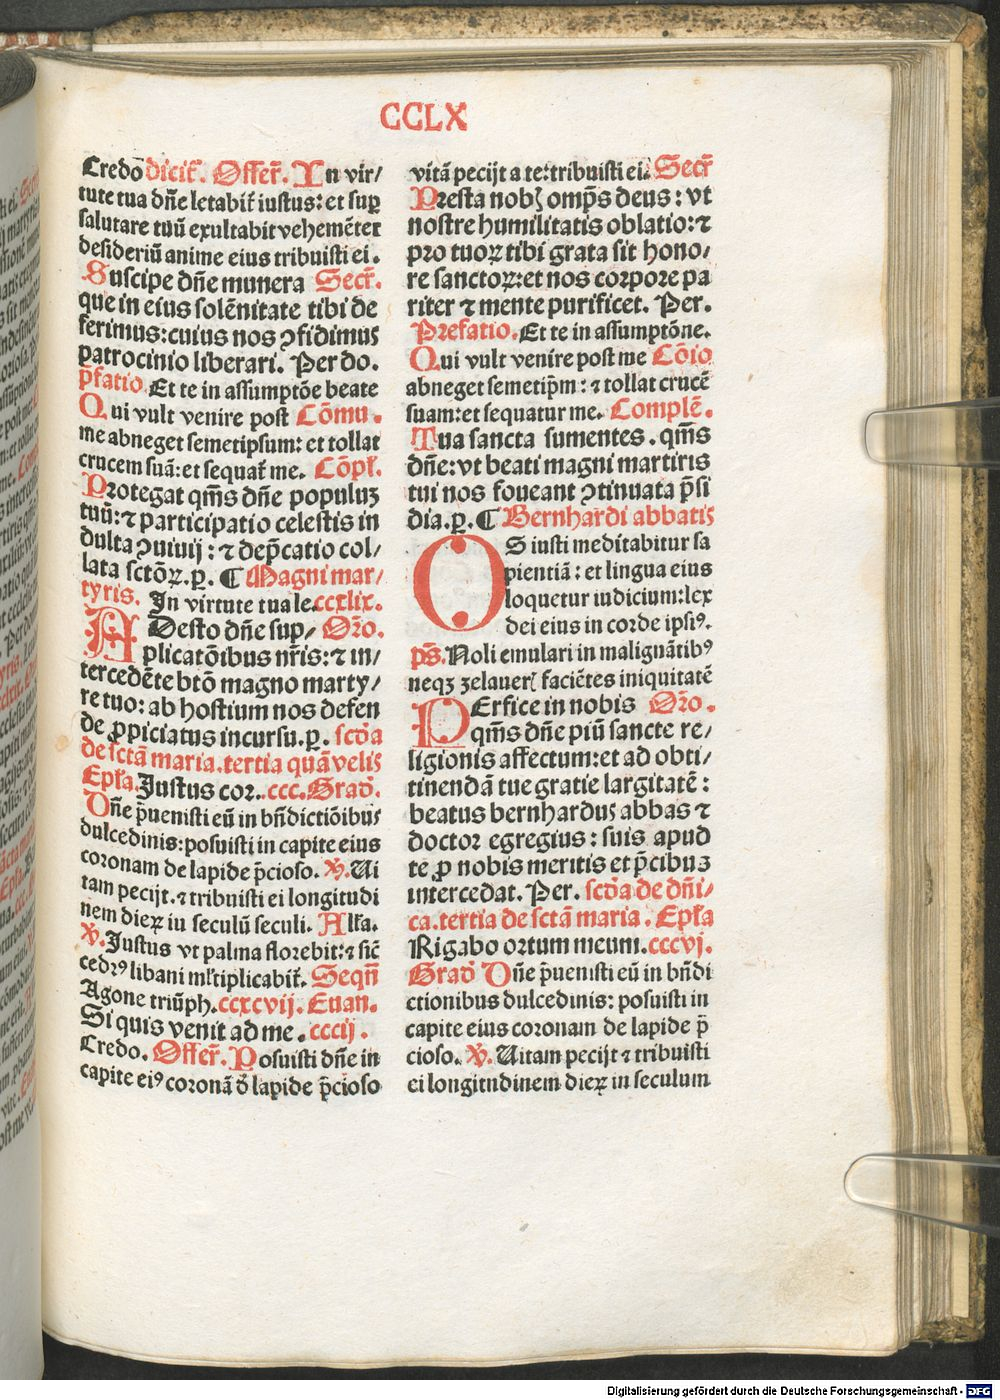 CCLX
Credo dicit᷑. Offer᷑. In vir/
tute tua dn̄e letabit᷑ iustus: et suꝑ
salutare tuū exultabit vehemēter
desideriū anime eius tribuisti ei.
Suscipe dn̄e munera Secr᷑.
que in eius solēnitate tibi de
ferimus: cuius nos ꝯfidimus
patrocinio liberari. Per do.
p̄fatio. Et te in assumptōe beate
Qui vult venire post Cōmu.
me abneget semetipsum: et tollat
crucem suā: et sequat᷑ me. Cōpl᷑.
Protegat qm̄s dn̄e populuʒ
tuū: ⁊ participatio celestis in
dulta ꝯuiuij: ⁊ dep̄catio col/
lata sctōꝝ. p. ¶ Magni mar/
tyris. In virtute tua le. ccxlix.
ADesto dn̄e sup/ Oro.
plicatōibus nr̄is: ⁊ in/
tercedēte btō magno marty/
re tuo: ab hostium nos defen
de ꝓpiciatus incursu. p. sctōa
de sctā maria. tertia quā velis
Ep̄la. Justus cor. ccc. Grad̄.
Dn̄e p̄uenisti eū in bn̄dictiōibus
dulcedinis: posuisti in capite eius
coronam de lapide p̄cioso. ℣. Ui
tam pecijt. ⁊ tribuisti ei longitudi
nem dieꝝ iu seculū seculi. Alla.
℣. Justus vt palma florebit: ⁊ sic̄
cedrꝰ libani ml̓tiplicabit᷑. Seqn̄
Agone triūph. ccxcvij. Euan.
Si quis venit ad me. cccij.
Credo. Offer᷑. Posuisti dn̄e in
capite eiꝰ coronā d̄ lapide p̄cioso
vitā pecijt a te: tribuisti ei. Secr᷑
Presta nobꝭ omp̄s deus: vt
nostre humilitatis oblatio: ⁊
pro tuoꝝ tibi grata sit hono/
re sanctoꝝ: et nos corpore pa
riter ⁊ mente purificet. Per.
Prefatio. Et te in assumptōne.
Qui vult venire post me Cōio
abneget semetip̄m: ⁊ tollat crucē
suam: et sequatur me. Complē.
Tua sancta sumentes. qm̄s
dn̄e: vt beati magni martiris
tui nos foueant ꝯtinuata p̄si
dia. p. ¶ Bernhardi abbatis
OS iusti meditabitur sa
pientiā: et lingua eius
loquetur iudicium: lex
dei eius in corde ipsiꝰ.
p̄s. Noli emulari in malignātibꝰ
neqʒ zelauerꝭ faciētes iniquitatē
PErfice in nobis Oro.
qm̄s dn̄e piū sancte re/
ligionis affectum: et ad obti/
tinendā tue gratie largitatē:
beatus bernhardus abbas ⁊
doctor egregius: suis apud
te ꝓ nobis meritis et p̄cibuʒ
intercedat. Per. sctōa de dn̄i/
ca. tertia de sctā maria. Ep̄la
Rigabo ortum meum. cccvj.
Grad̄ Dn̄e p̄uenisti eū in bn̄di
ctionibus dulcedinis: posuisti in
capite eius coronam de lapide p̄
cioso. ℣. Uitam pecijt ⁊ tribuisti
ei longitudinem dieꝝ in seculum
Digitalisierung gefördert durch die Deutsche Forschungsgemeinschaft - DFG